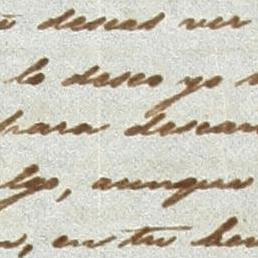 deseas ver
lo deseo yo
para descan
lgo, aunque
en tu